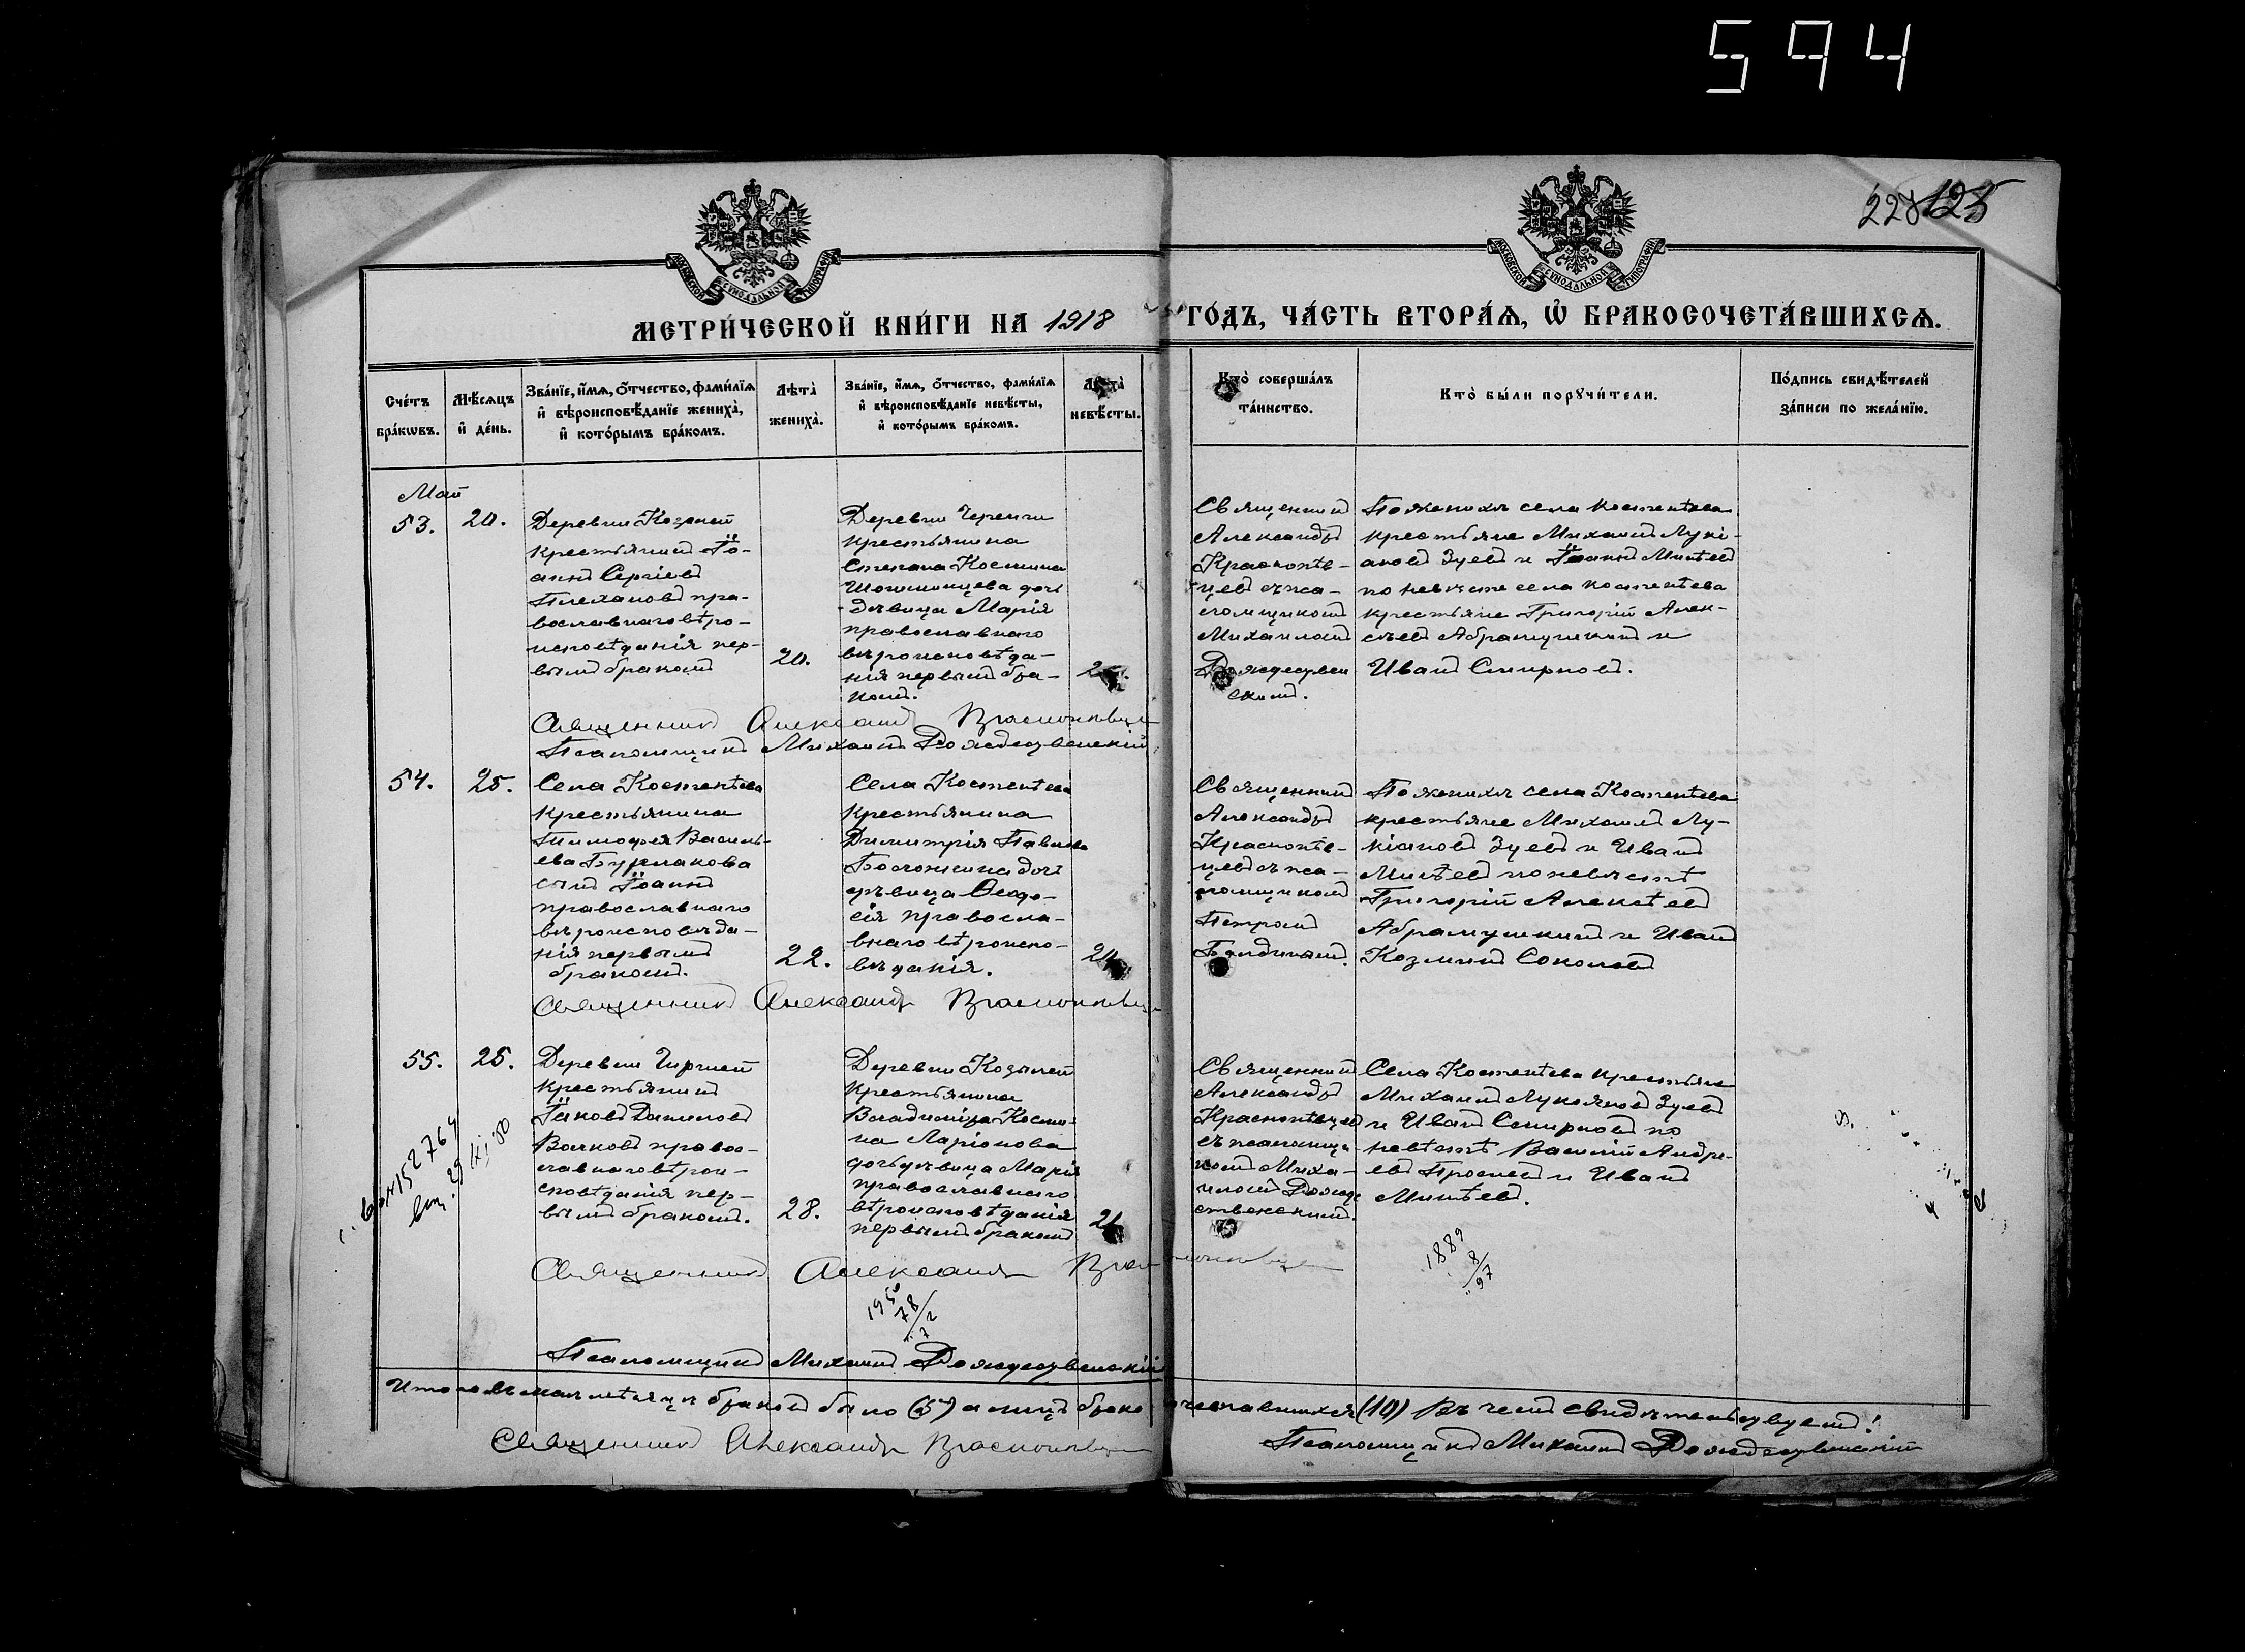 594
228 125
МОСКОВСКОЙ СѴНОДАЛЬНОЙ ТИПОГРАФІИ
МОСКОВСКОЙ СѴНОДАЛЬНОЙ ТИПОГРАФІИ
МЕТРИ́ЧЕСКОЙ КНИ́ГИ НА 1918 ГО́ДЪ, ЧА́СТЬ ВТОРА́Ѧ, Ѡ҆ БРАКОСОЧЕТА́ВШИХСѦ.
Сче́тъ бра́кѡвъ.
Мѣ́сѧцъ и҆ де́нь.
Зва́нїе, и҆́мѧ, ѻ҆́тчество, фами́лїѧ
и҆ вѣроисповѣ́данїе жениха̀,
и҆ кото́рымъ бра́комъ.
Лѣта̀ жениха̀.
Зва́нїе, и҆́мѧ, ѻ҆́тчество, фами́лїѧ
и҆ вѣроисповѣ́данїе невѣ́сты,
и҆ кото́рымъ бра́комъ.
Лѣта̀ невѣ́сты.
Кто̀ соверша́лъ
та́инство.
Кто̀ бы́ли порꙋчи́тели.
По́дпись свидѣ́телей
за́писи по жела́нїю.
Май
53.
20.
Деревни
крестьянинъ Іо-
аннъ Сергіевъ
Плехановъ пра-
вославнаго вѣро-
исповѣданія пер-
вымъ бракомъ
20.
Деревни
крестьянина
Степана Костина
дочь
дѣвица Марія
православнаго
вѣроисповѣда-
нія первымъ бра-
комъ.
Священникъ
Александръ
Краснопѣв-
цевъ съ пса-
ломщикомъ
Михаиломъ
Рождествен
скимъ.
По женихѣ села Костенѣева
крестьяне Михаилъ Лукі-
ановъ Зуевъ и Іоаннъ Минѣевъ
по невѣсте села Костенѣева
крестьяне Григорій Алек-
сѣевъ Абрамушкинъ и
Иванъ Смирновъ.
Священникъ Александръ Краснопѣвцевъ
Псаломщикъ Михаилъ Рождественскій
54.
25.
Села Костенѣева
крестьянина
Тимофея Василь-
ева Бурлакова
сынъ Іоаннъ
православнаго
вѣроисповѣда-
нія первымъ
бракомъ.
22.
Села Костенѣева
крестьянина
Димитрія Павлова
дочь
дѣвица Ѳеодо-
сія правосла-
внаго вѣроиспо-
вѣданія.
Священникъ
Александръ
Краснопѣв-
цевъ съ пса-
ломщикомъ
Петромъ
По женихѣ села Костенѣева
крестьяне Михаилъ Лу-
кіановъ Зуевъ и Иванъ
Минѣевъ по невѣстѣ
Григорій Алексѣевъ
Абрамушкинъ и Иванъ
Козминъ Соколовъ
Священникъ Александръ Краснопѣвцевъ
55.
25.
Деревни
крестьянинъ
Іаковъ Даниловъ
Волковъ право-
славнаго вѣрои-
сповѣданія пер-
вымъ бракомъ.
28.
Деревни
крестьянина
Владиміра Косми-
на Ларіонова
дочь дѣвица Марія
православнаго
вѣроисповѣданія
первымъ бракомъ
21
Священникъ
Александръ
Краснопѣвцевъ
съ псаломщи-
комъ Миха-
иломъ Рожде
ственскимъ.
Села Костенѣева крестьяне
Михаилъ Лукьяновъ Зуевъ
и Иванъ Смирновъ по
невѣстѣ Василій Андре-
евъ и Иванъ
Минѣевъ.
Священникъ Александръ Краснопѣвцевъ
Псаломщикъ Михаилъ Рождественскій
Итого въ маѣ мѣсяцѣ браковъ было (5) а лицъ бракосочетавшихся (10) Въ чемъ свидѣтельствуемъ:
Священникъ Александръ Краснопѣвцевъ
Псаломщикъ Михаилъ Рождественскій